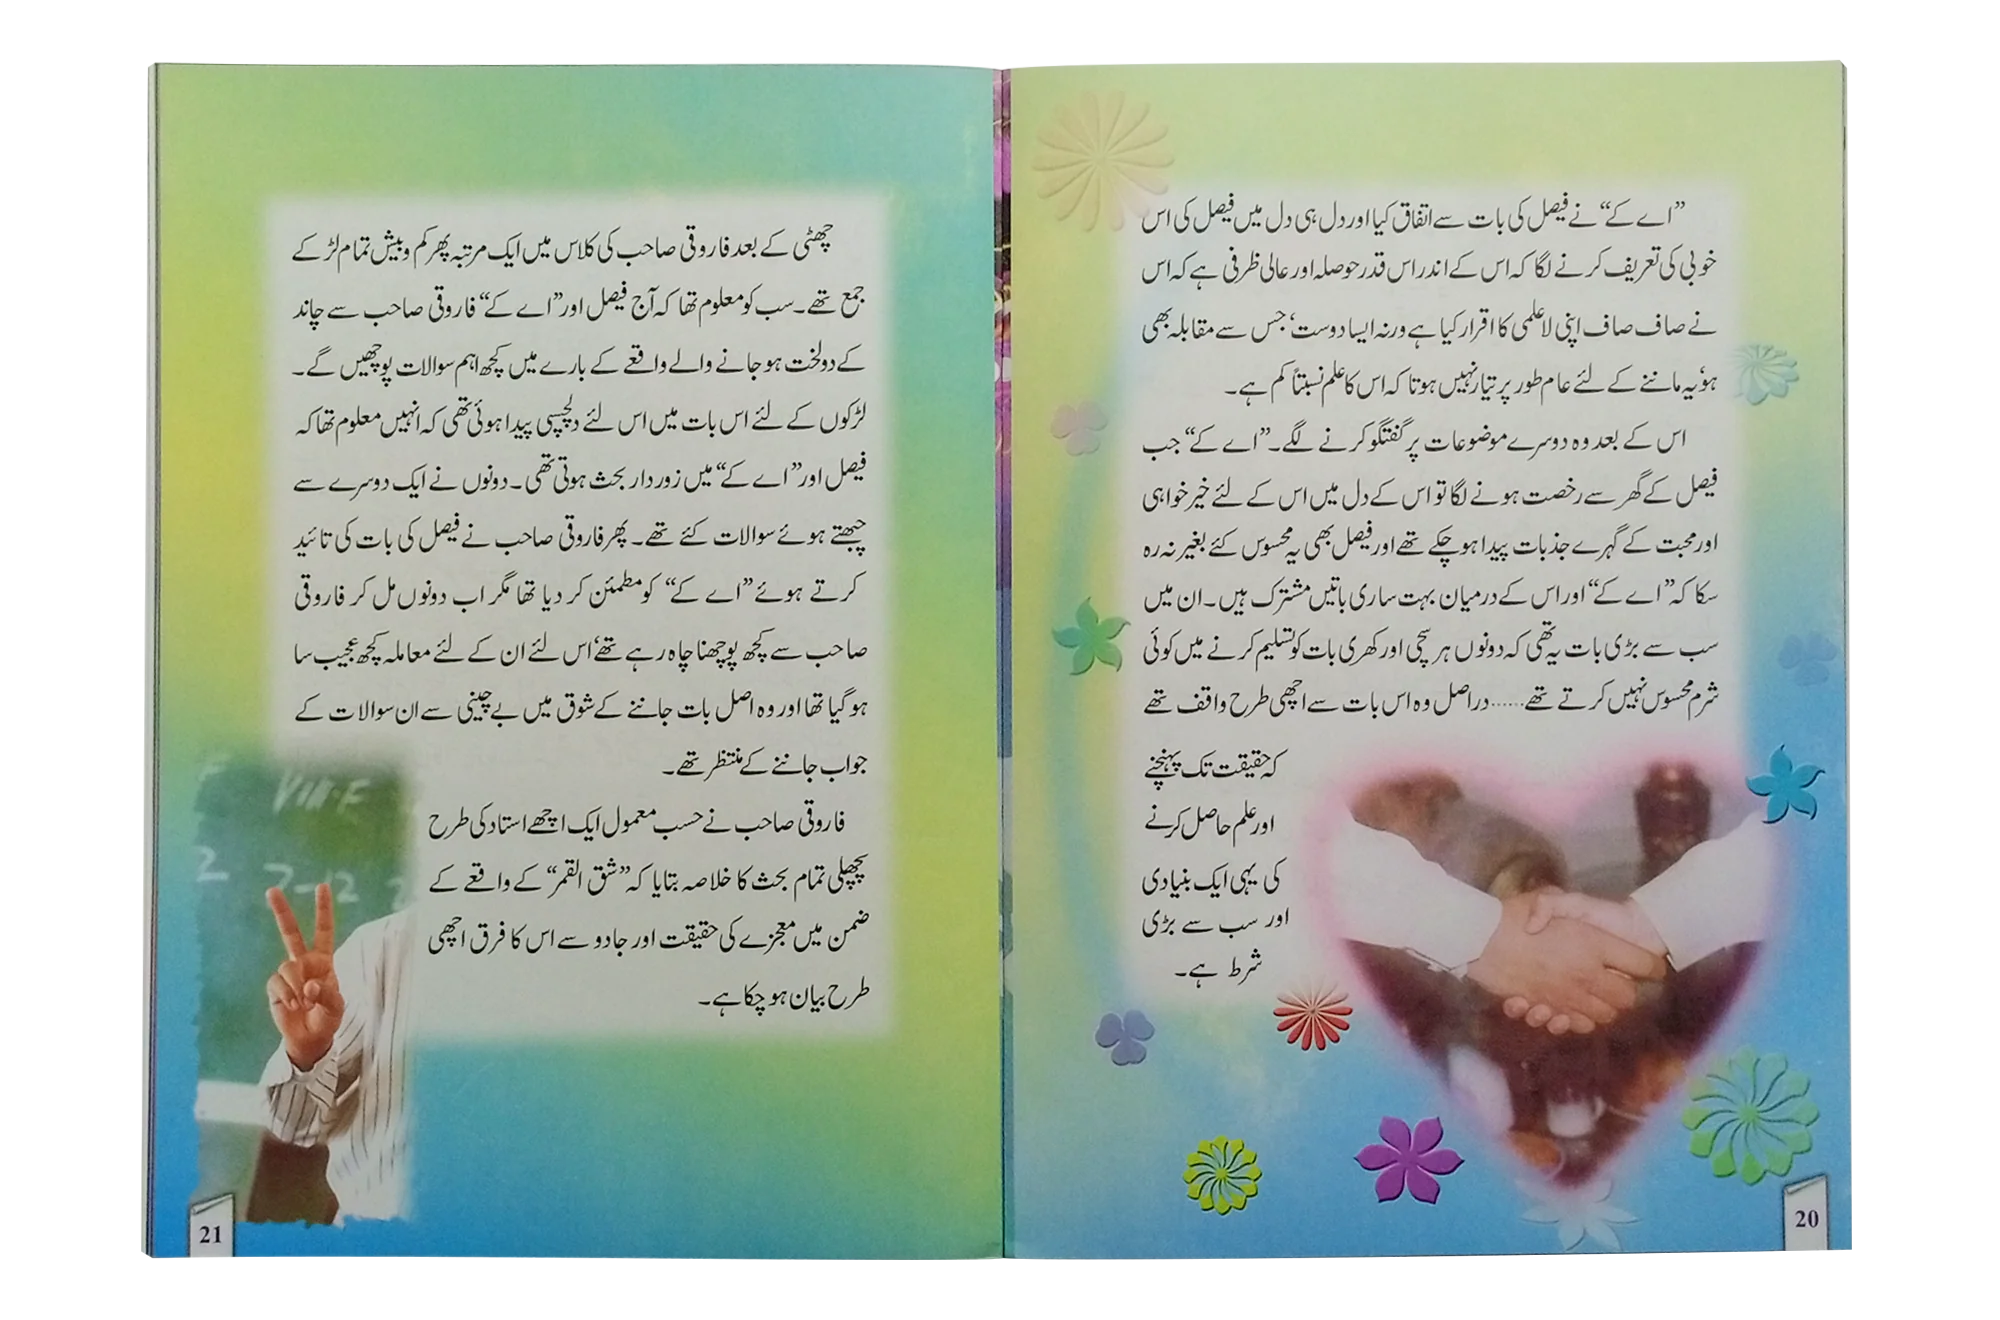 ”اے کے“ نے فیصل کی بات سے اتفاق کیا اور دل ہی دل میں فیصل کی اس
خوبی کی تعریف کرنے لگا کہ اس کے اندر اس قدر حوصلہ اور عالی ظرفی ہے کہ اس
نے صاف صاف اپنی لاعلمی کا اقرار کیا ہے ورنہ ایسا دوست، جس سے مقابلہ بھی
ہو، یہ ماننے کے لئے عام طور پر تیار نہیں ہوتا کہ اس کا علم نسبتاً کم ہے۔
اس کے بعد وہ دوسرے موضوعات پر گفتگو کرنے لگے۔ ”اے کے“ جب
فیصل کے گھر سے رخصت ہونے لگا تو اس کے دل میں اس کے لئے خیر خواہی
اور محبت کے گہرے جذبات پیدا ہو چکے تھے اور فیصل بھی یہ محسوس کئے بغیر نہ رہ
سکا کہ ”اے کے“ اور اس کے درمیان بہت ساری باتیں مشترک ہیں۔ ان میں
سب سے بڑی بات یہ تھی کہ دونوں ہر سچی اور کھری بات کو تسلیم کرنے میں کوئی
شرم محسوس نہیں کرتے تھے...... دراصل وہ اس بات سے اچھی طرح واقف تھے
کہ حقیقت تک پہنچنے
اور علم حاصل کرنے
کی یہی ایک بنیادی
اور سب سے بڑی
شرط ہے۔
20
چھٹی کے بعد فاروقی صاحب کی کلاس میں ایک مرتبہ پھر کم و بیش تمام لڑکے
جمع تھے۔ سب کو معلوم تھا کہ آج فیصل اور ”اے کے“ فاروقی صاحب سے چاند
کے دولخت ہو جانے والے واقعے کے بارے میں کچھ اہم سوالات پوچھیں گے۔
لڑکوں کے لئے اس بات میں اس لئے دلچسپی پیدا ہوئی تھی کہ انہیں معلوم تھا کہ
فیصل اور ”اے کے“ میں زوردار بحث ہوتی تھی۔ دونوں نے ایک دوسرے سے
چبھتے ہوئے سوالات کئے تھے۔ پھر فاروقی صاحب نے فیصل کی بات کی تائید
کرتے ہوئے ”اے کے“ کو مطمئن کر دیا تھا مگر اب دونوں مل کر فاروقی
صاحب سے کچھ پوچھنا چاہ رہے تھے، اس لئے ان کے لئے معاملہ کچھ عجیب سا
ہو گیا تھا اور وہ اصل بات جاننے کے شوق میں بے چینی سے ان سوالات کے
جواب جاننے کے منتظر تھے۔
فاروقی صاحب نے حسب معمول ایک اچھے استاد کی طرح
پچھلی تمام بحث کا خلاصہ بتایا کہ ”شق القمر“ کے واقعے کے
ضمن میں معجزے کی حقیقت اور جادو سے اس کا فرق اچھی
طرح بیان ہو چکا ہے۔
VIII-F
2
7-12
21